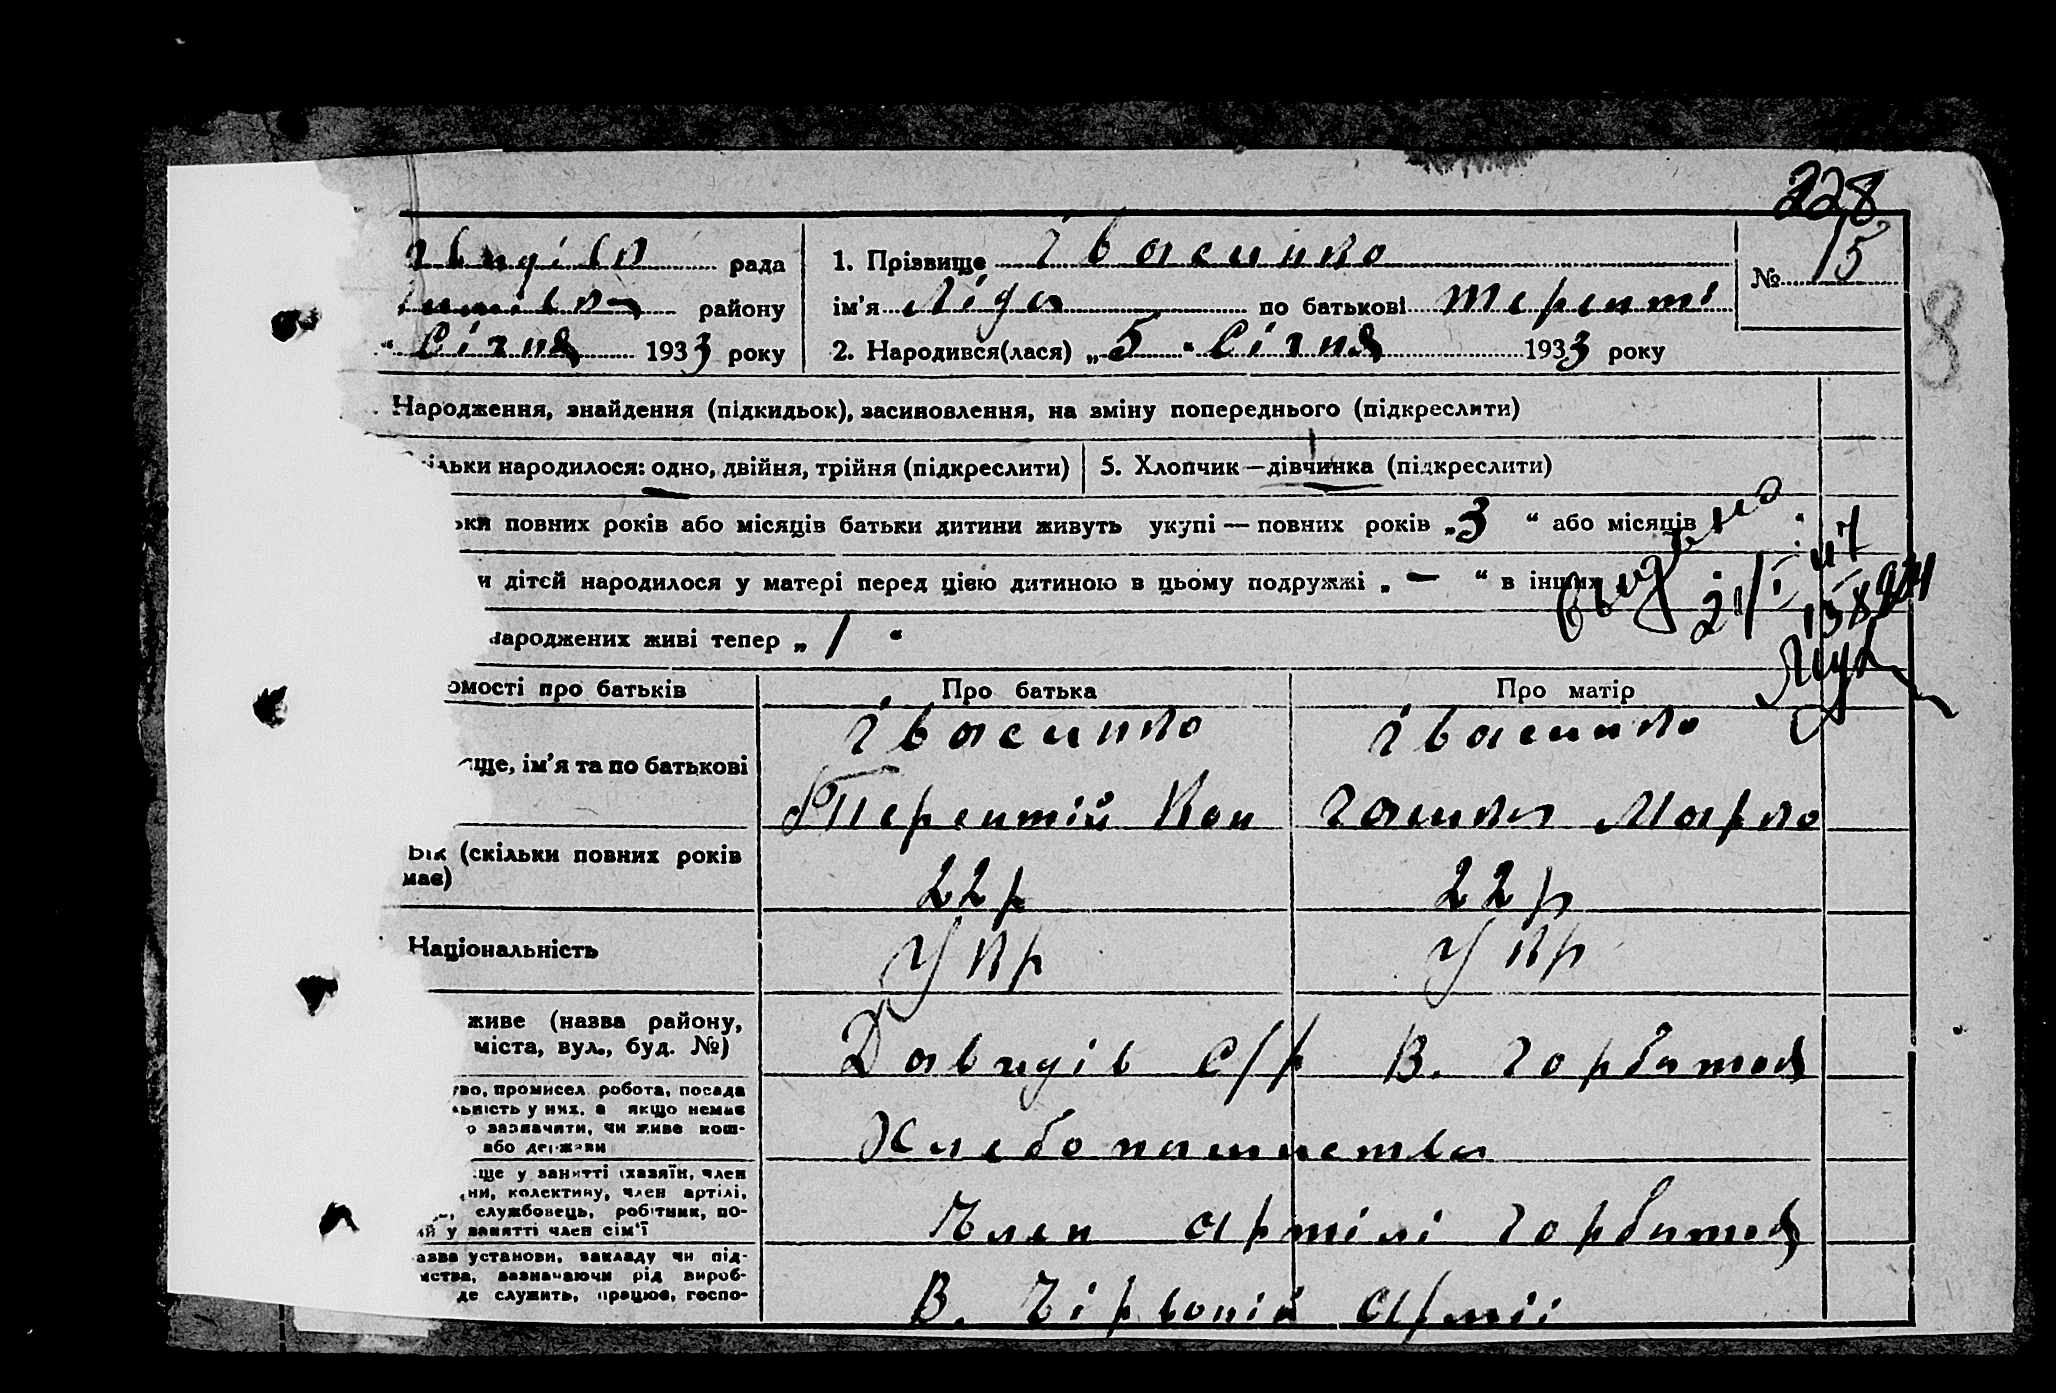 228
рада
1. Прізвище Івасинко
№ 15
району
ім'я Ліда по батькові Теренті
" Січня 1933 року
2. Народився(лася) „5" Січня 1933 року
8
Народження, знайдення (підкидьок), засиновлення, на зміну попереднього (підкреслити)
ільки народилося: одно, двійня, трійня (підкреслити)
5. Хлопчик—дівчинка (підкреслити)
ьки повних років або місяців батьки дитини живуть укупі — повних років „3" або місяців
и дітей народилося у матері перед цією дитиною в цьому подружжі „—" в інших
народжених живі тепер „1"
омості про батьків
Про батька
Про матір
ще, ім'я та по батькові
Івасинко
Терентій Кон
Івасинко
Гашка Марко
Вік (скільки повних років має)
22 р
22 р
Національність
Укр
Укр
живе (назва району,
міста, вул., буд. №)
Давидів с/р В. Горбатая
тво, промисел, робота, посада
льність у них, а якщо немає
о зазначити, чи живе кош-
або держави
Хлебопашества
ще у занятті (хазяїн, член
ни, колективу, член артілі,
службовець, робітник, по-
ий у занятті член сім'ї
Член артілі Горбатая
азва установи, закладу чи під-
мства, зазначаючи рід вироб-
де служить, працює, госпо-
В. Чірвоній армії